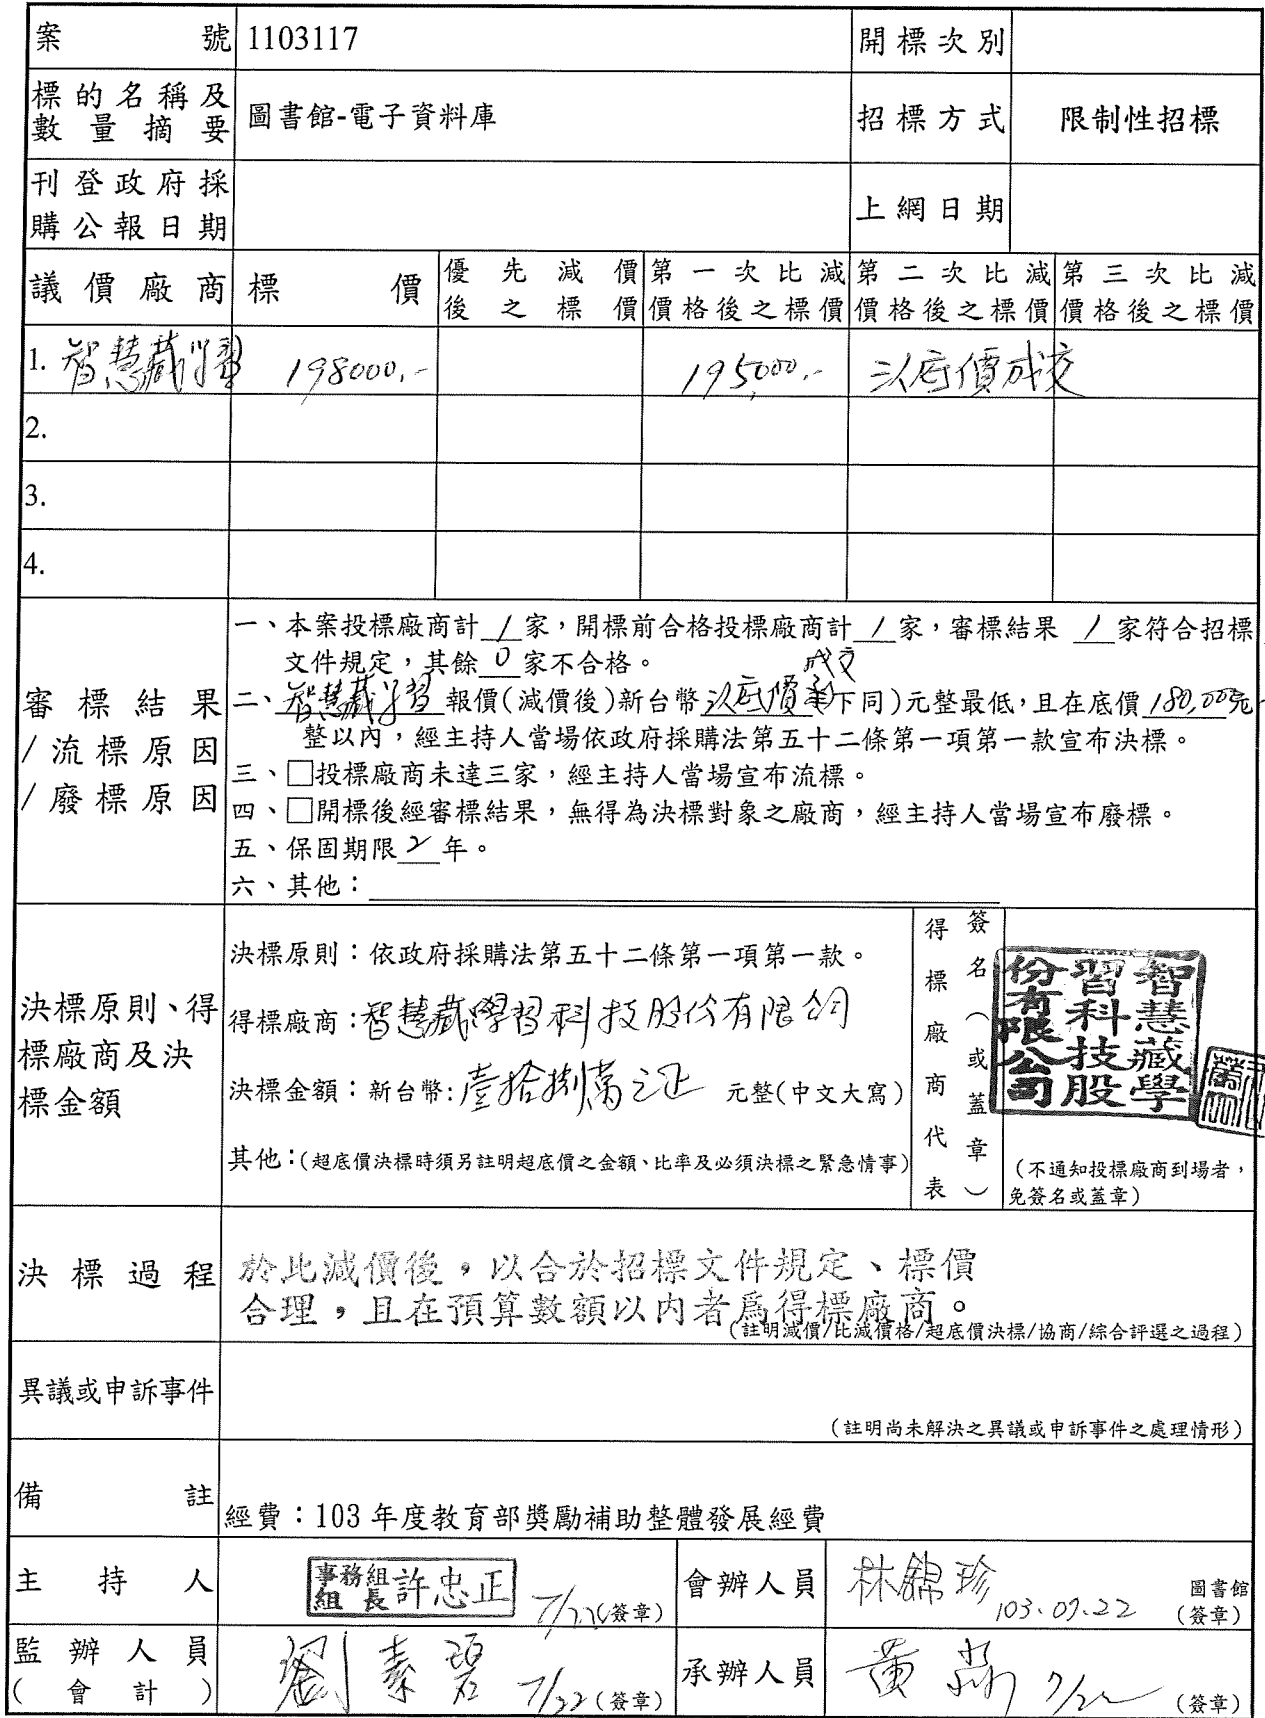 案號 1103117 開標次別
標的名稱及數量摘要 圖書館-電子資料庫 招標方式 限制性招標
刊登政府採購公報日期 上網日期
議價廠商 標價 優先減價後之標價 第一次比減價格後之標價 第二次比減價格後之標價 第三次比減價格後之標價
1. 智慧藏學習 198000.- 195,000.- 以底價成交
2.
3.
4.
審標結果/流標原因/廢標原因
一、本案投標廠商計 1 家，開標前合格投標廠商計 1 家，審標結果 1 家符合招標
文件規定，其餘 0 家不合格。
成交
二、智慧藏學習 報價(減價後)新台幣 以底價 (下同)元整最低，且在底價 180,000元
整以內，經主持人當場依政府採購法第五十二條第一項第一款宣布決標。
三、□投標廠商未達三家，經主持人當場宣布流標。
四、□開標後經審標結果，無得為決標對象之廠商，經主持人當場宣布廢標。
五、保固期限 2 年。
六、其他：
決標原則、得標廠商及決標金額
決標原則：依政府採購法第五十二條第一項第一款。
得標廠商：智慧藏學習科技股份有限公司
決標金額：新台幣:壹拾捌萬元正 元整(中文大寫)
其他：(超底價決標時須另註明超底價之金額、比率及必須決標之緊急情事)
得標廠商代表
簽名（或蓋章）
智慧藏學習科技股份有限公司
(不通知投標廠商到場者，
免簽名或蓋章)
決標過程
於比減價後，以合於招標文件規定、標價
合理，且在預算數額以內者為得標廠商。
(註明減價/比減價格/超底價決標/協商/綜合評選之過程)
異議或申訴事件
(註明尚未解決之異議或申訴事件之處理情形)
備註
經費：103 年度教育部獎勵補助整體發展經費
主持人 事務組組長 許忠正 7/22 (簽章) 會辦人員 林錦珍 103.07.22 圖書館(簽章)
監辦人員(會計) 劉素碧 7/22 (簽章) 承辦人員 黃 7/22 (簽章)